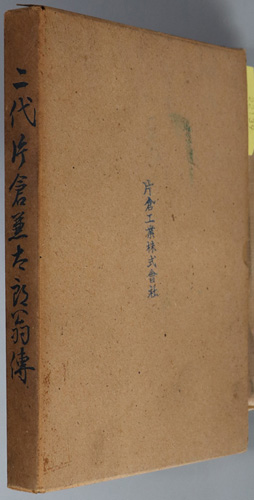 二代片倉兼太郎翁傳
片倉工業株式會社